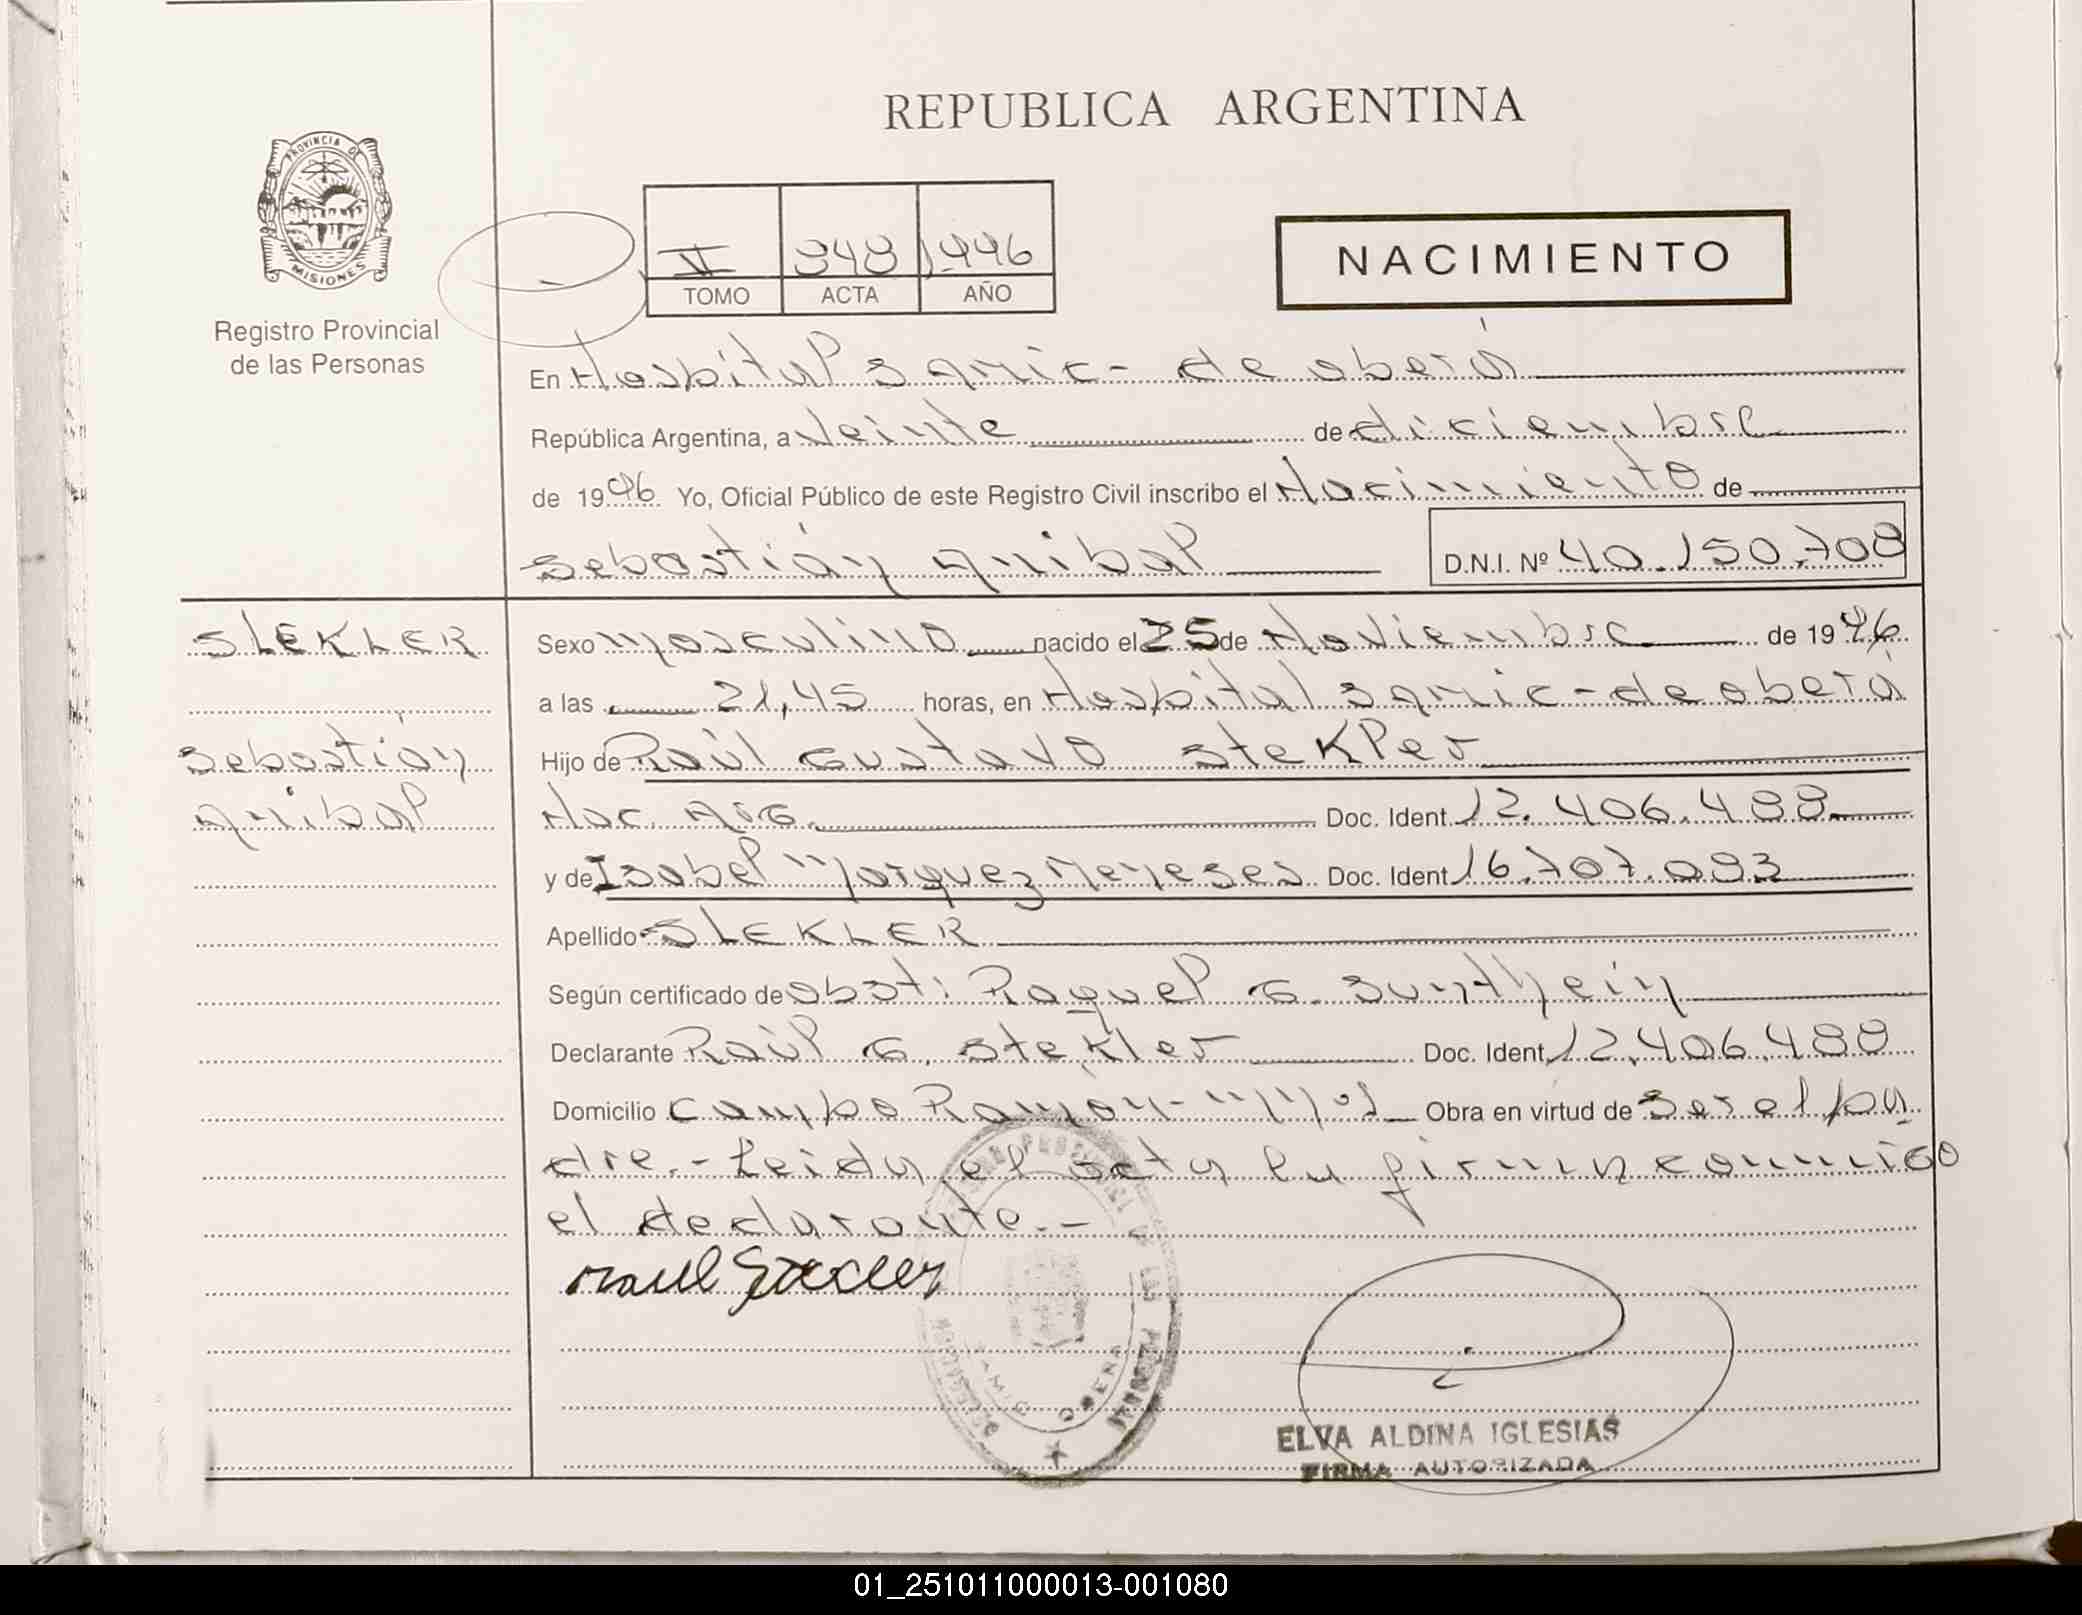 REPUBLICA ARGENTINA
PROVINCIA DE
MISIONES
Registro Provincial
de las Personas
V 948 1996
TOMO ACTA AÑO
NACIMIENTO
En Hospital Samic- de oberá
República Argentina, a veinte de diciembre
de 1996. Yo, Oficial Público de este Registro Civil inscribo el Nacimiento de
Sebastián Anibal D.N.I. Nº 40.150.708
STEKLER
Sebastián
Anibal
Sexo Masculino nacido el 25 de Noviembre de 1996
a las 21,45 horas, en Hospital Samic-de oberá
Hijo de Raúl Gustavo Stekler
Nac. Arg. Doc. Ident. 12.406.488
y de Isabel Marquez Meneses Doc. Ident. 16.707.093
Apellido STEKLER
Según certificado de obst: Raquel G. Sunthein
Declarante Raúl G. Stekler Doc. Ident. 12.406.488
Domicilio Campo Ramón- Obra en virtud de Ser el pa
dre.- Leida el acta la firma conmigo
el declarante.-
Raul Stekler
SAMIC OBERA
ELVA ALDINA IGLESIAS
FIRMA AUTORIZADA
01_251011000013-001080